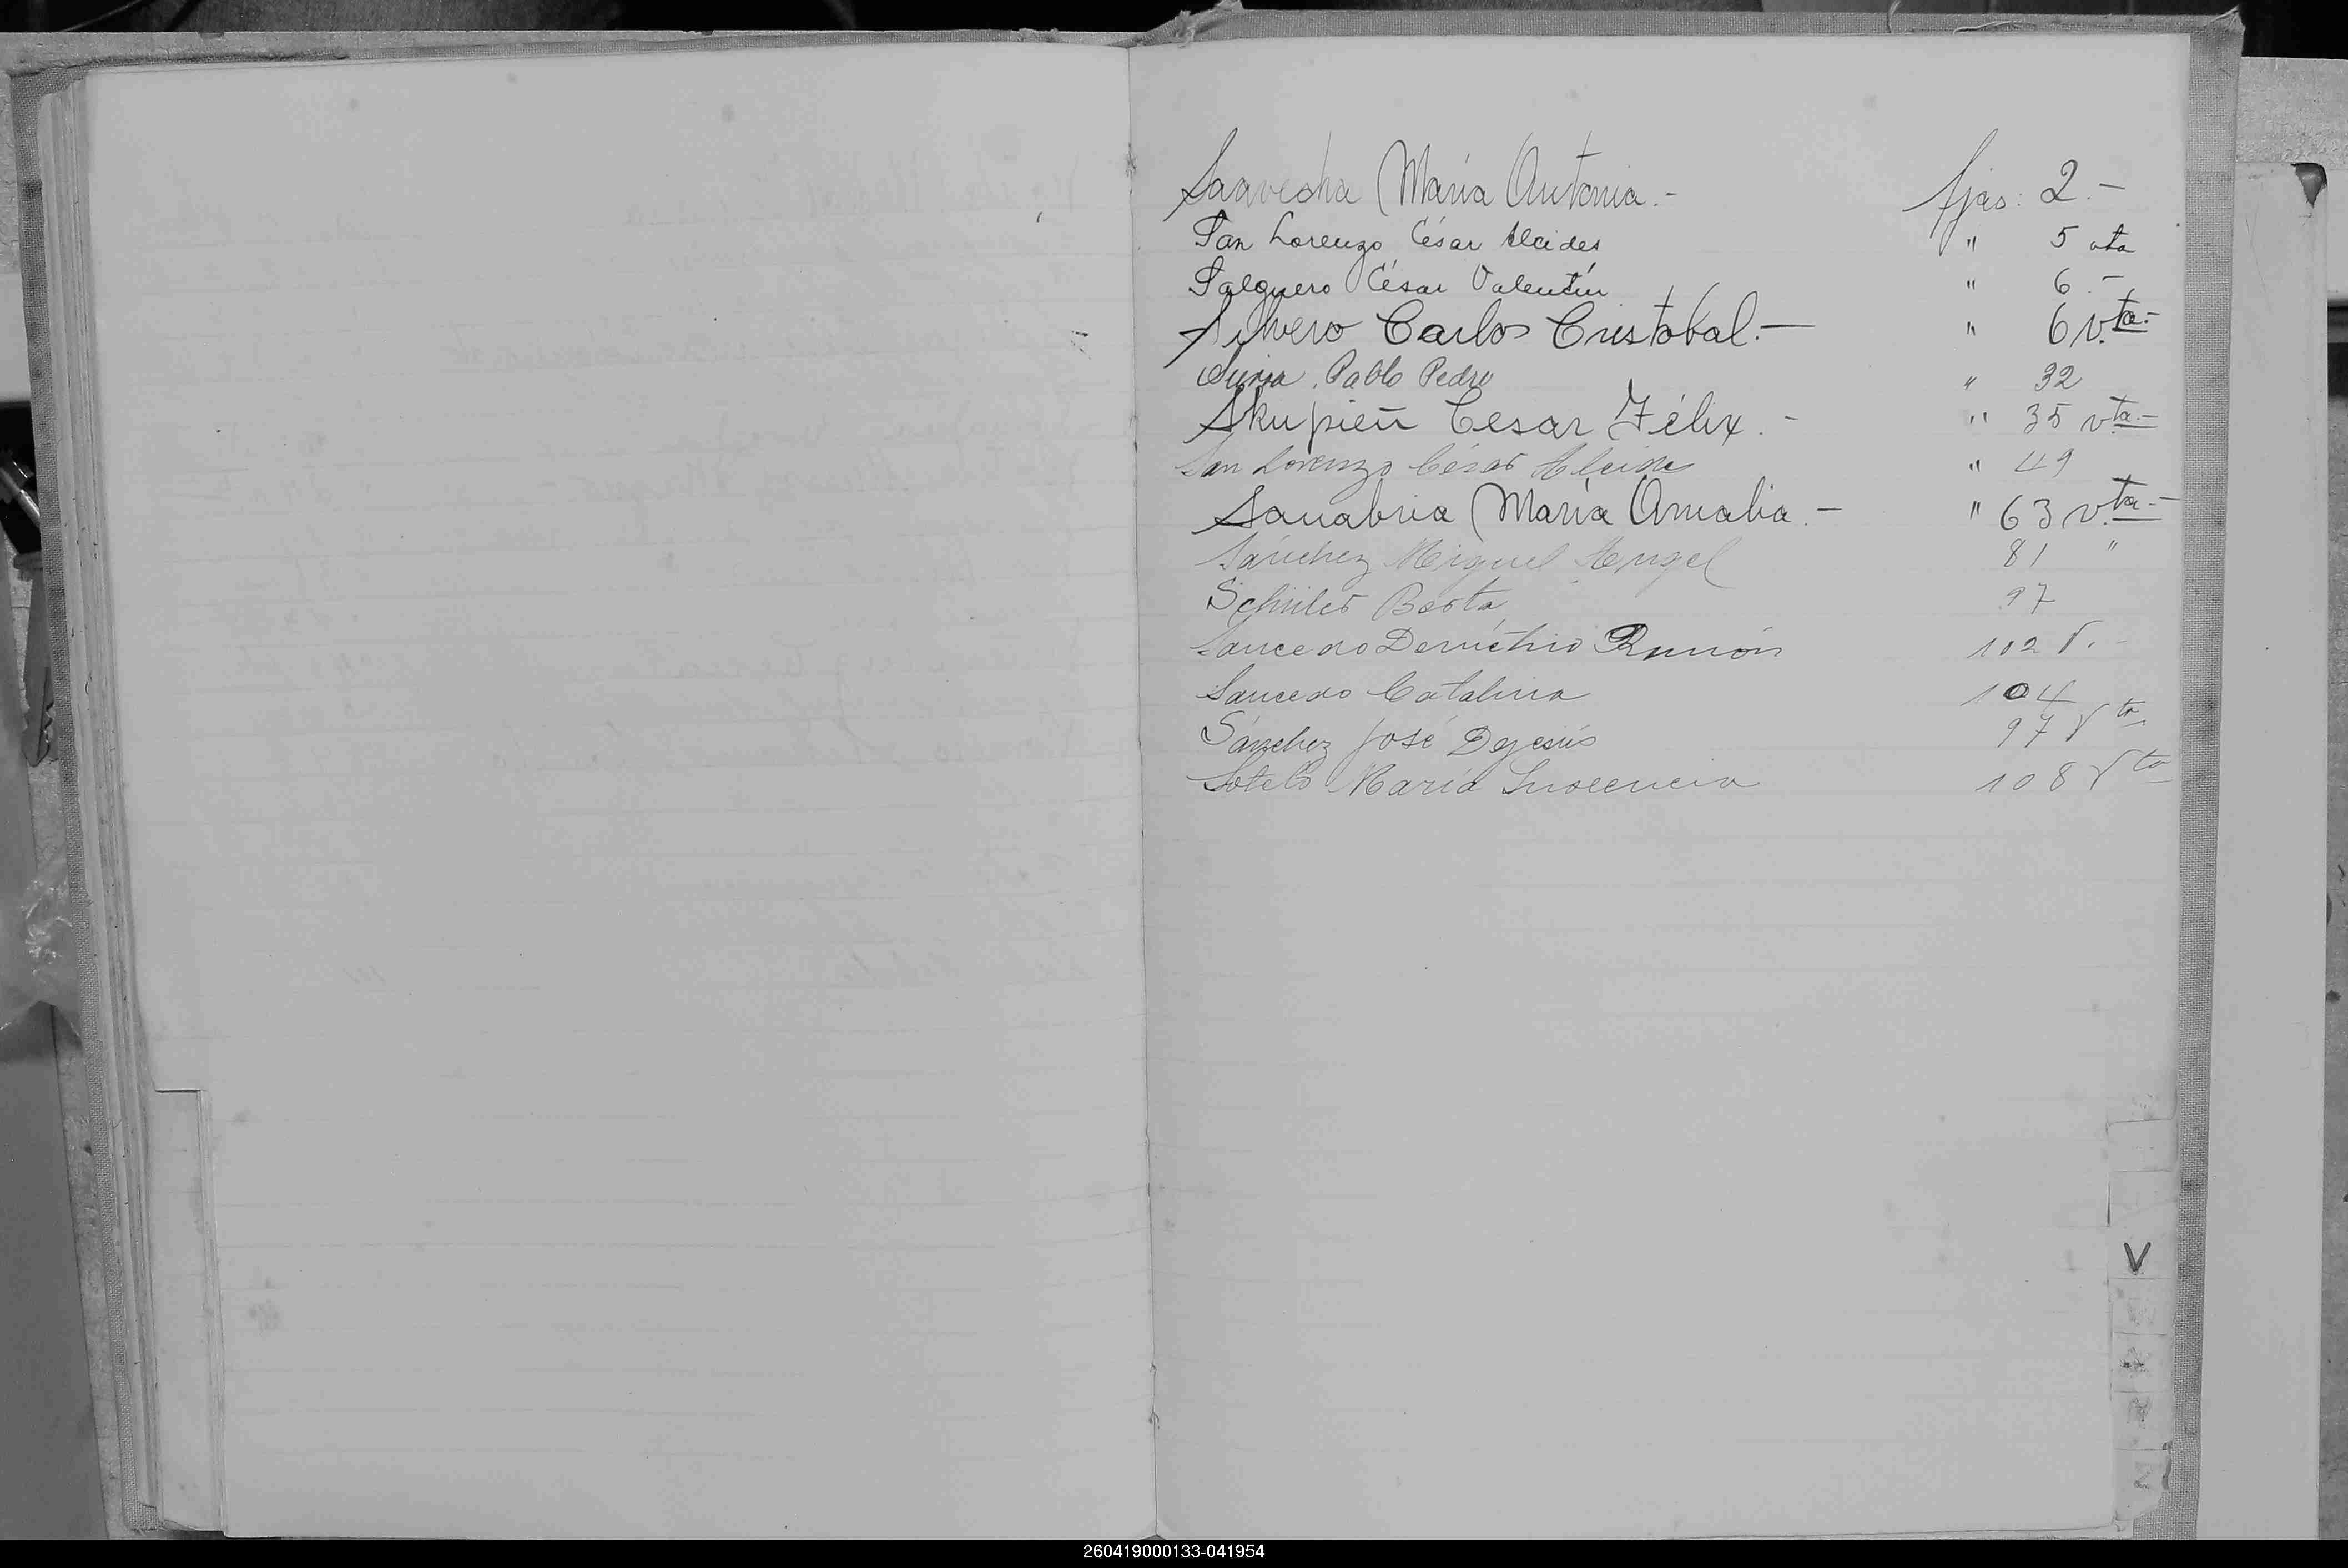 Saavedra María Antonia.- fjas: 2.-
San Lorenzo César Alcides " 5 vta
Salguero César Valentín " 6.-
Silvero Carlos Cristobal.- " 6 vta.-
Pablo Pedro " 32
Skupieñ Cesar Félix.- " 35 vta.-
San Lorenzo César Alcides " 49
Sanabria María Amalia.- " 63 vta.-
Sánchez Miguel Angel 81 "
Schüler Berta 97
Saucedo Demetrio Ramón 102 V.-
Saucedo Catalina 104
Sánchez José Dejesús 97 Vta.
Sotelo María Inocencia 108 Vta
V
260419000133-041954